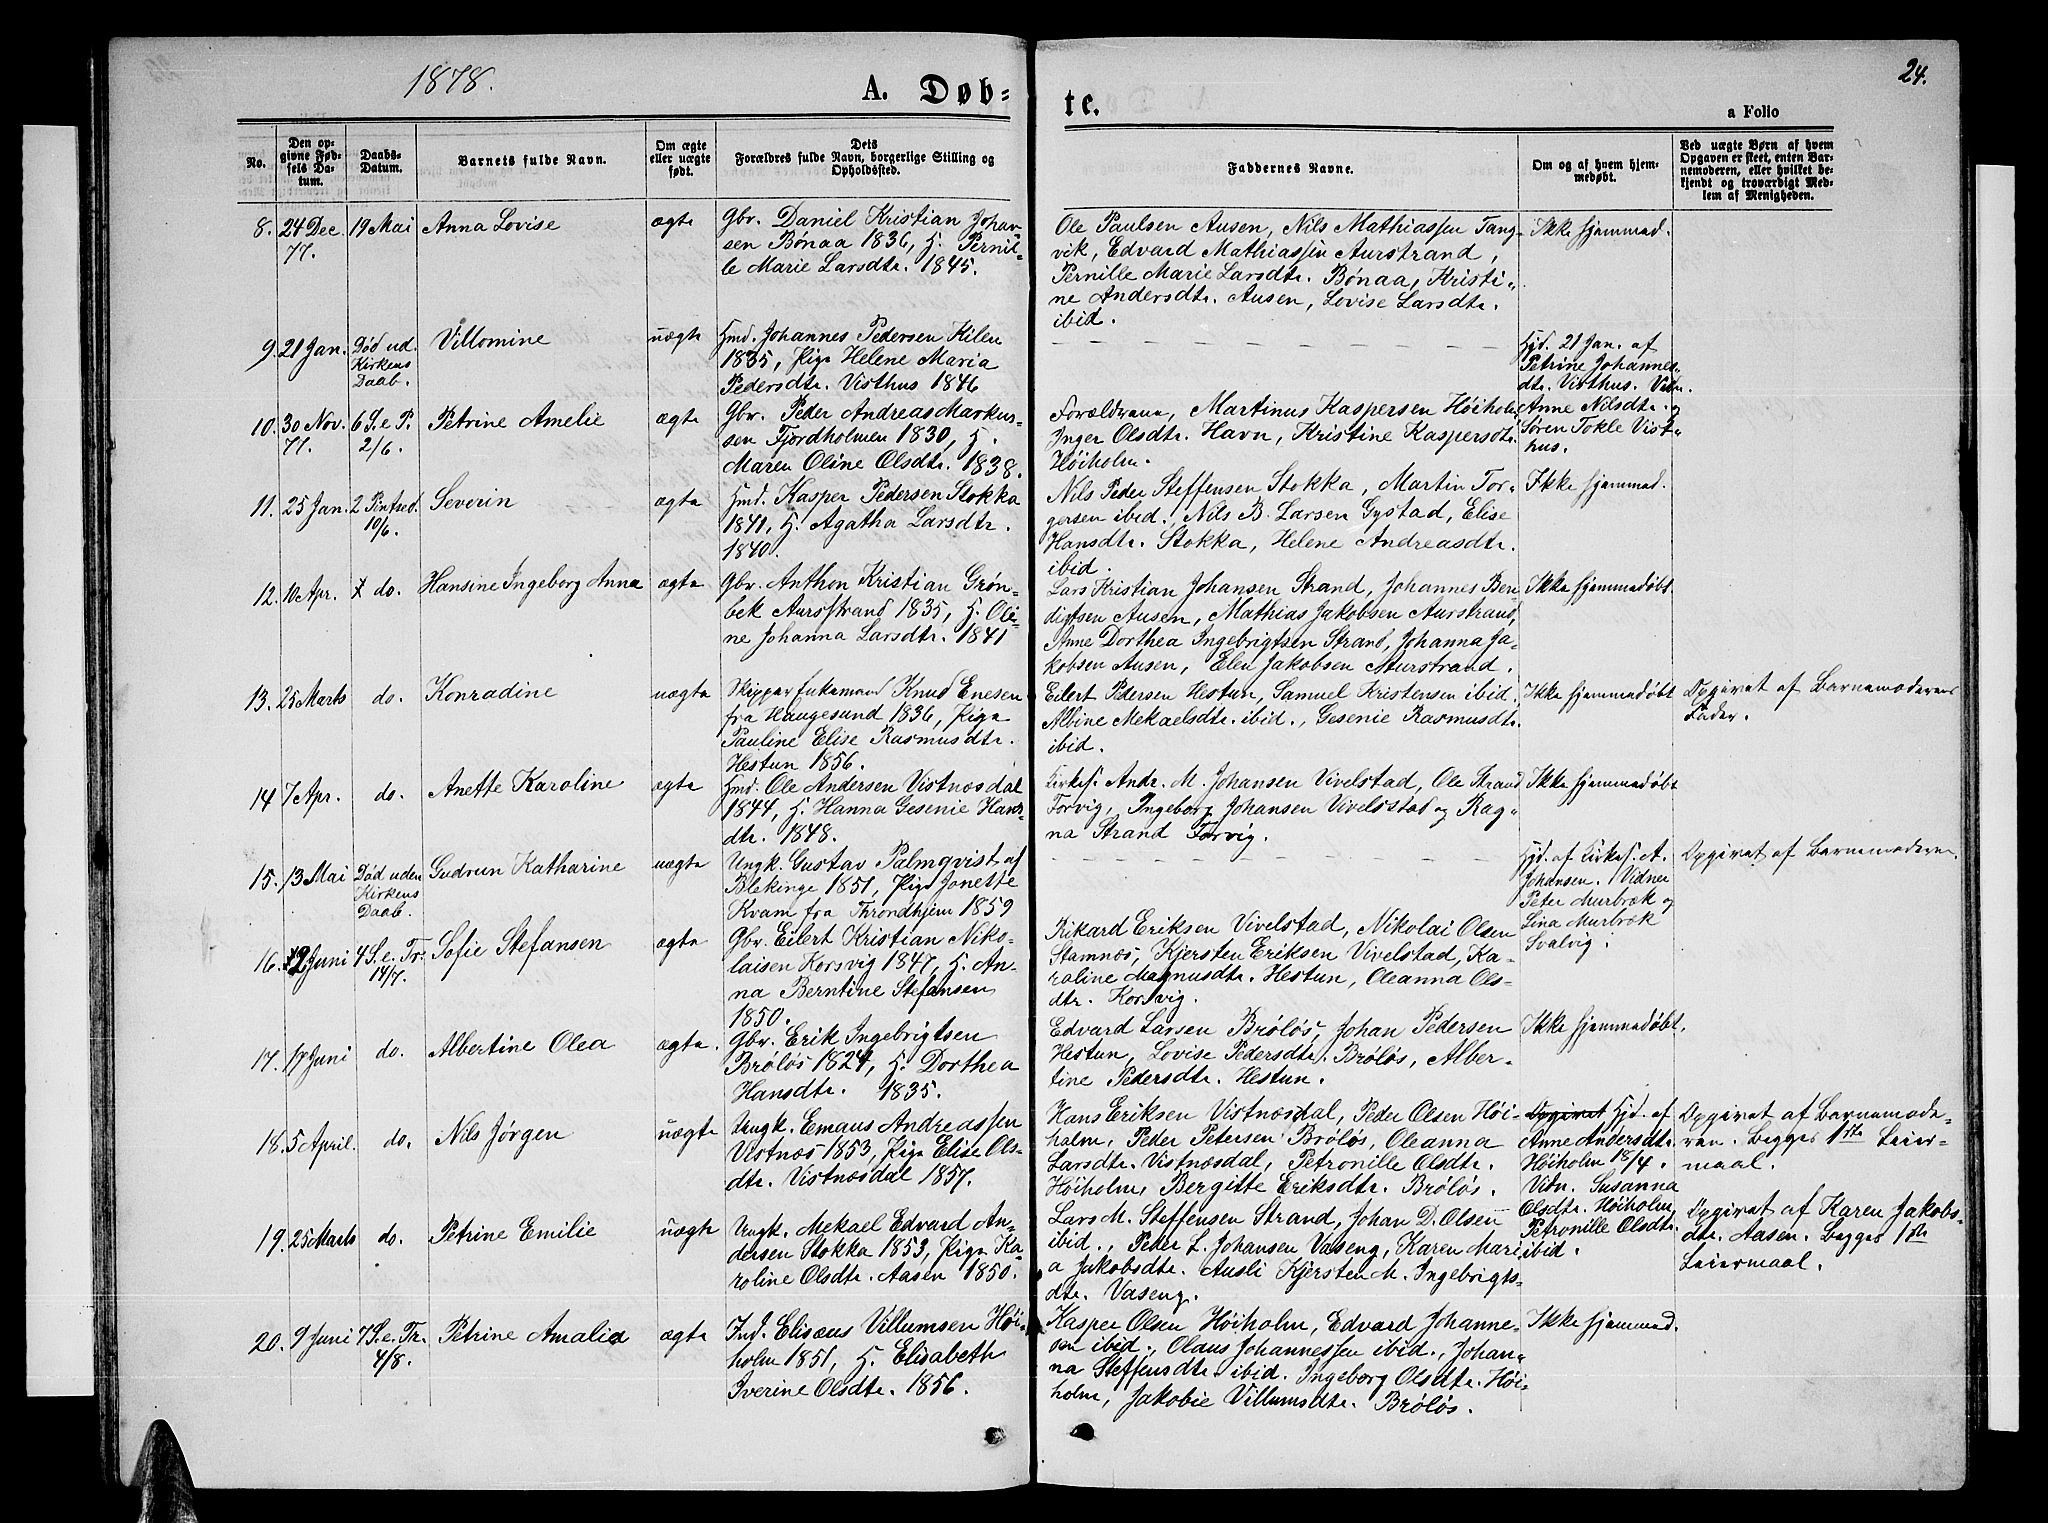 1878.
A. Døb-
te.
24.
a Folio
No.
Den op-
givne Fød-
sels Da-
tum.
Daabs-
Datum.
Barnets fulde Navn.
Om ægte
eller uægte
født.
Dets
Forældres fulde Navn, borgerlige Stilling og
Opholdssted.
Faddernes Navne.
Om og af hvem hjem-
medøbt.
Ved uægte Børn af hvem
Opgaven er skeet, enten Bar-
nemoderen, eller hvilket be-
kjendt og troværdigt Med-
lem af Menigheden.
8. 24 Dec. 19 Mai Anna Lovise ægte Gbr. Daniel Kristian Johan-
77. sen Bønaa 1836, H. Pernil-
le Marie Larsdtr. 1845.
Ole Paulsen Ausen, Nils Mathiassen Tang-
vik, Edvard Mathiassen Aurstrand,
Pernille Marie Larsdtr. Bønaa, Kristi-
ne Andersdtr. Ausen, Lovise Larsdtr.
ibid.
Ikke hjemmed.
9. 21 Jan. Død ud. Villomine uægte Hmd. Johannes Pedersen Kilen
Kirkens 1835, Pige Helene Maria
Daab. Pedersdtr. Visthus 1846
Hjd. 21 Jan. af
Petrine Johannes-
dtr. Visthus. Vidn.
Anne Nilsdtr. og
Søren Tokle Vist-
hus.
10. 30 Nov. 6 S. e P. Petrine Amelie ægte Gbr. Peder Andreas Markus-
77. 2/6. sen Fjordholmen 1830, H.
Maren Oline Olsdtr. 1838.
Forældrene, Martinus Kaspersen Høiholm,
Inger Olsdtr. Havn, Kristine Kaspersdtr.
Høiholm.
11. 25 Jan. 2 Pintsed. Severin ægte Hmd. Kasper Pedersen Stokka
10/6. 1841, H. Agatha Larsdtr.
1840.
Nils Peder Steffensen Stokka, Martin Tor-
gersen ibid., Nils B. Larsen Gystad, Elise
Hansdtr. Stokka, Helene Andreasdtr.
ibid.
Ikke hjemmed.
12. 10 Apr. do. Hansine Ingeborg Anna ægte Gbr. Anthon Kristian Grøn-
bek Aursstrand 1835, H. Oli-
ne Johanna Larsdtr. 1841
Lars Kristian Johansen Strand, Johannes Ben-
digtsen Ausen, Mathias Jakobsen Aurstrand,
Anne Dorthea Ingebrigtsen Strand, Johanna Ja-
kobsen Ausen, Elen Jakobsen Aurstrand.
Ikke hjemmedøbt.
13. 25 Marts do. Konradine uægte Skipper Enkemand Knud Enesen
fra Haugesund 1836, Pige
Pauline Elise Rasmusdtr.
Hestun 1856.
Eilert Pedersen Hestun, Samuel Kristensen ibid.
Albine Mekaelsdtr. ibid., Gesenie Rasmusdtr.
ibid.
Ikke hjemmedøbt
Opgivet af Barnemoderens
Fader.
14. 7 Apr. do. Anette Karoline ægte Hmd. Ole Andersen Vistnæsdal
1844, H. Hanna Gesenie Hans-
dtr. 1848.
Kirkes. Andr. M. Johansen Vivelstad, Ole Strand
Forvig, Ingeborg Johansen Vivelstad og Rag-
na Strand Forvig.
Ikke hjemmedøbt
15. 13 Mai Død uden Gudrun Katharine uægte Ungk. Gustav Palmqvist af
Kirkens Blekinge 1851, Pige Jonette
Daab. Kvam fra Throndhjem 1859
Hjd. af Kirkes. A.
Johansen. Vidner
Peter Murbræk og
Lina Murbræk
Svalvig.
Opgivet af Barnemoderen.
16. 12 Juni 4 S. e. Tr. Sofie Stefansen ægte Gbr. Eilert Kristian Niko-
14/7. laisen Korsvig 1847, H. An-
na Berntine Stefansen
1850.
Rikard Eriksen Vivelstad, Nikolai Olsen
Stamnæs, Kjersten Eriksen Vivelstad, Ka-
roline Magnusdtr. Hestun, Oleanna Ols-
dtr. Korsvig.
17. 17 Juni do. Albertine Olea ægte. Gbr. Erik Ingebrigtsen
Brøløs 1824, H. Dorthea
Hansdtr. 1835.
Edvard Larsen Brøløs, Johan Pedersen
Hestun, Lovise Pedersdtr. Brøløs, Alber-
tine Pedersdtr. Hestun.
Ikke hjemmedøbt.
18. 5 April. do. Nils Jørgen uægte Ungk. Emaus Andreassen
Vistnæs 1853, Pige Elise Ols-
dtr. Vistnæsdal 1857.
Hans Eriksen Vistnæsdal, Peder Olsen Høi-
holm, Peder Petersen Brøløs, Oleanna
Larsdtr. Vistnæsdal, Petronille Olsdtr.
Høiholm, Bergitte Eriksdtr. Brøløs.
Opgivet Hjd. af
Anne Andersdtr.
Høiholm 18/4.
Vidn. Susanna
Olsdtr. Høiholm,
Petronille Olsdtr.
ibid.
Opgivet af Barnemode-
ren. Begges 1ste Leier-
maal.
19. 25 Marts do. Petrine Emilie uægte Ungk. Mekael Edvard An-
dersen Stokka 1853, Pige Ka-
roline Olsdtr. Aasen 1850.
Lars M. Steffensen Strand, Johan D. Olsen
ibid., Peder L. Johansen Vaseng, Karen Mari
a Jakobsdtr. Ausli Kjersten M. Ingebrigts-
dtr. Vaseng.
Opgivet af Karen Jakobs-
dtr. Aasen. Begges 1ste
Leiermaal.
20. 9 Juni 7 S. e. Tr. Petrine Amalia ægte Ind. Elisæus Villumsen Høi-
4/8. holm 1851, H. Elisabeth
Iverine Olsdtr. 1856.
Kasper Olsen Høiholm, Edvard Johanne-
sen ibid., Olaus Johannessen ibid., Johan-
na Steffensdtr. ibid. Ingeborg Olsdtr. Høi-
holm, Jakobie Villumsdtr. Brøløs.
Ikke hjemmed.